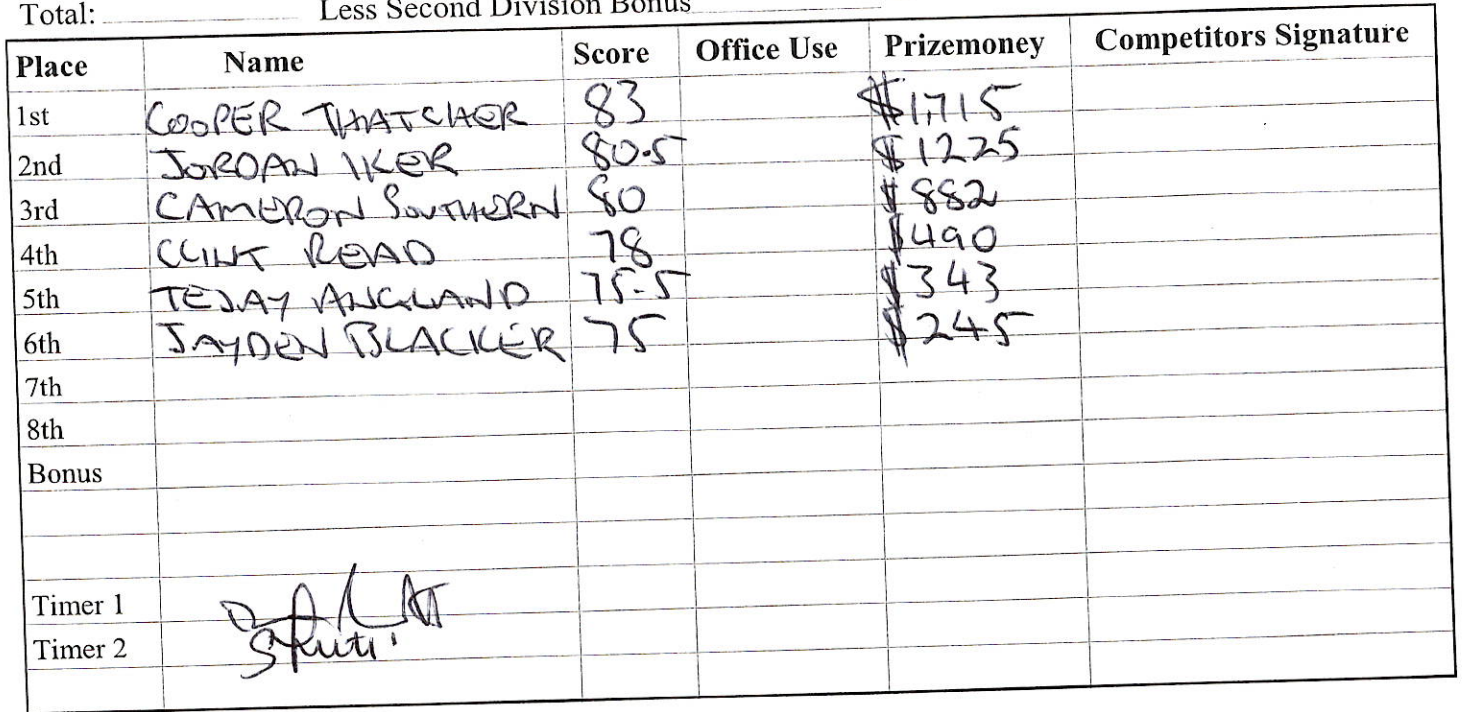 Total: Less Second Division Bonus
Place Name Score Office Use Prizemoney Competitors Signature
1st COOPER THATCHER 83 $1,715
2nd JORDAN IKER 80.5 $1225
3rd CAMERON SOUTHERN 80 $882
4th CLINT READ 78 $490
5th TEJAY ANGLAND 75.5 $343
6th JAYDEN BLACKER 75 $245
7th
8th
Bonus
Timer 1
Timer 2